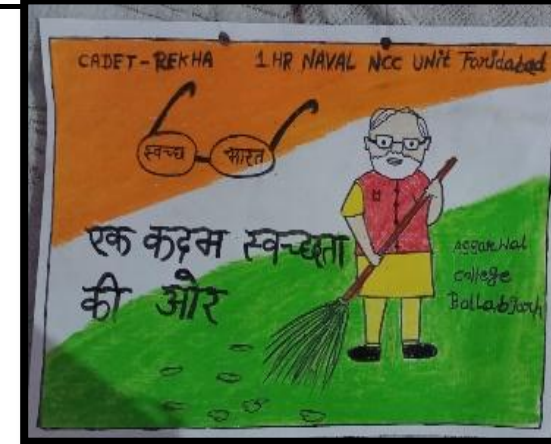 CADET-REKHA 1 HR NAVAL NCC UNIT Faridabad
स्वच्छ भारत
एक कदम स्वच्छता
की ओर
Aggarwal
college
Ballabgarh